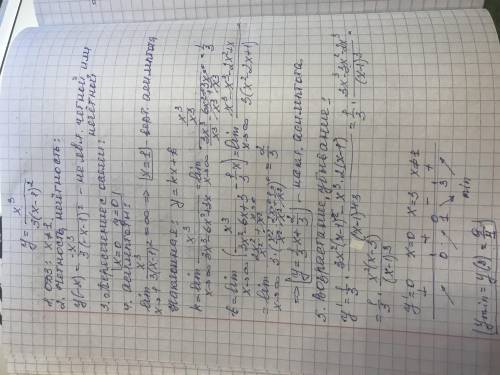 y = x³/(3(x-1)²)
1. ОДЗ: x≠1
2. чётность, нечётность:
y(-x) = -x³/(3(-x-1)²) - не явл. чётной или нечётной
3. пересечение с осями:
x=0 y=0
4. асимптоты:
lim x→1 x³/(3(x-1)²) = ∞ => x=1 - верт. асимптота
наклонная: y = kx+b
k = lim x→∞ x³/(3x³-6x²+3x) = lim x→∞ = 1/3
b = lim x→∞ (x³/(3x²-6x+3) - 1/3 x) = lim x→∞ (x³-x³+2x²-x)/(3(x²-2x+1))
= lim x→∞ = 2/3
=> y = 1/3 x + 2/3 - накл. асимптота
5. Возрастание, убывание:
y' = 1/3 · (3x²(x-1)² - x³·2(x-1))/(x-1)⁴ = 1/3 · (3x³-3x²-2x³)/(x-1)³
= 1/3 · x²(x-3)/(x-1)³
y'=0 x=0 x=3 x≠1
+ + - +
0 1 3
min
y min = y(3) = 9/4